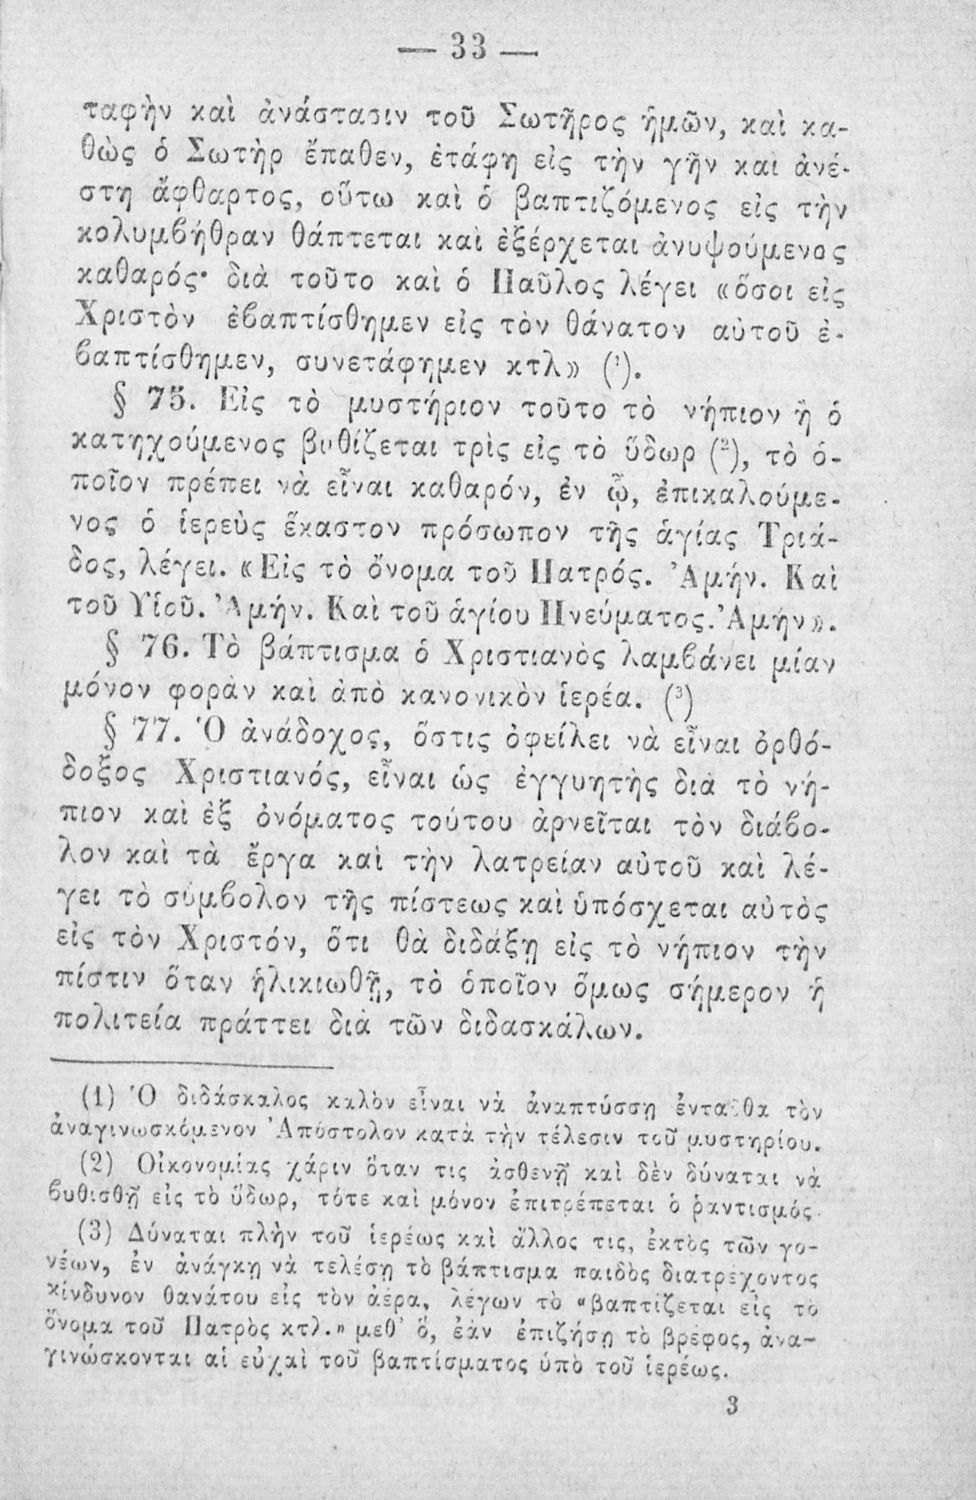 — 33 —
ταφὴν καὶ ἀνάστασιν τοῦ Σωτῆρος ἡμῶν, καὶ κα-
θὼς ὁ Σωτὴρ ἔπαθεν, ἐτάφη εἰς τὴν γῆν καὶ ἀνέ-
στη ἄφθαρτος, οὕτω καὶ ὁ βαπτιζόμενος εἰς τὴν
κολυμβήθραν θάπτεται καὶ ἐξέρχεται ἀνυψούμενος
καθαρός· διὰ τοῦτο καὶ ὁ Παῦλος λέγει «ὅσοι εἰς
Χριστὸν ἐβαπτίσθημεν εἰς τὸν θάνατον αὐτοῦ ἐ-
βαπτίσθημεν, συνετάφημεν κτλ» (¹).
§ 75. Εἰς τὸ μυστήριον τοῦτο τὸ νήπιον ἢ ὁ
κατηχούμενος βυθίζεται τρὶς εἰς τὸ ὕδωρ (²), τὸ ὁ-
ποῖον πρέπει νὰ εἶναι καθαρόν, ἐν ᾧ, ἐπικαλούμε-
νος ὁ ἱερεὺς ἕκαστον πρόσωπον τῆς ἁγίας Τριά-
δος, λέγει. «Εἰς τὸ ὄνομα τοῦ Πατρός. Ἀμήν. Καὶ
τοῦ Υἱοῦ. Ἀμήν. Καὶ τοῦ ἁγίου Πνεύματος. Ἀμήν».
§ 76. Τὸ βάπτισμα ὁ Χριστιανὸς λαμβάνει μίαν
μόνον φορὰν καὶ ἀπὸ κανονικὸν ἱερέα. (³)
§ 77. Ὁ ἀνάδοχος, ὅστις ὀφείλει νὰ εἶναι ὀρθό-
δοξος Χριστιανός, εἶναι ὡς ἐγγυητὴς διὰ τὸ νή-
πιον καὶ ἐξ ὀνόματος τούτου ἀρνεῖται τὸν διάβο-
λον καὶ τὰ ἔργα καὶ τὴν λατρείαν αὐτοῦ καὶ λέ-
γει τὸ σύμβολον τῆς πίστεως καὶ ὑπόσχεται αὐτὸς
εἰς τὸν Χριστόν, ὅτι θὰ διδάξῃ εἰς τὸ νήπιον τὴν
πίστιν ὅταν ἡλικιωθῇ, τὸ ὁποῖον ὅμως σήμερον ἡ
πολιτεία πράττει διὰ τῶν διδασκάλων.
(1) Ὁ διδάσκαλος καλὸν εἶναι νὰ ἀναπτύσσῃ ἐνταῦθα τὸν
ἀναγινωσκόμενον Ἀπόστολον κατὰ τὴν τέλεσιν τοῦ μυστηρίου.
(2) Οἰκονομίας χάριν ὅταν τις ἀσθενῇ καὶ δὲν δύναται νὰ
βυθισθῇ εἰς τὸ ὕδωρ, τότε καὶ μόνον ἐπιτρέπεται ὁ ῥαντισμός.
(3) Δύναται πλὴν τοῦ ἱερέως καὶ ἄλλος τις, ἐκτὸς τῶν γο-
νέων, ἐν ἀνάγκῃ νὰ τελέσῃ τὸ βάπτισμα παιδὸς διατρέχοντος
κίνδυνον θανάτου εἰς τὸν ἀέρα, λέγων τὸ «βαπτίζεται εἰς τὸ
ὄνομα τοῦ Πατρὸς κτλ.» μεθ' ὅ, ἐὰν ἐπιζήσῃ τὸ βρέφος, ἀνα-
γινώσκονται αἱ εὐχαὶ τοῦ βαπτίσματος ὑπὸ τοῦ ἱερέως.
3